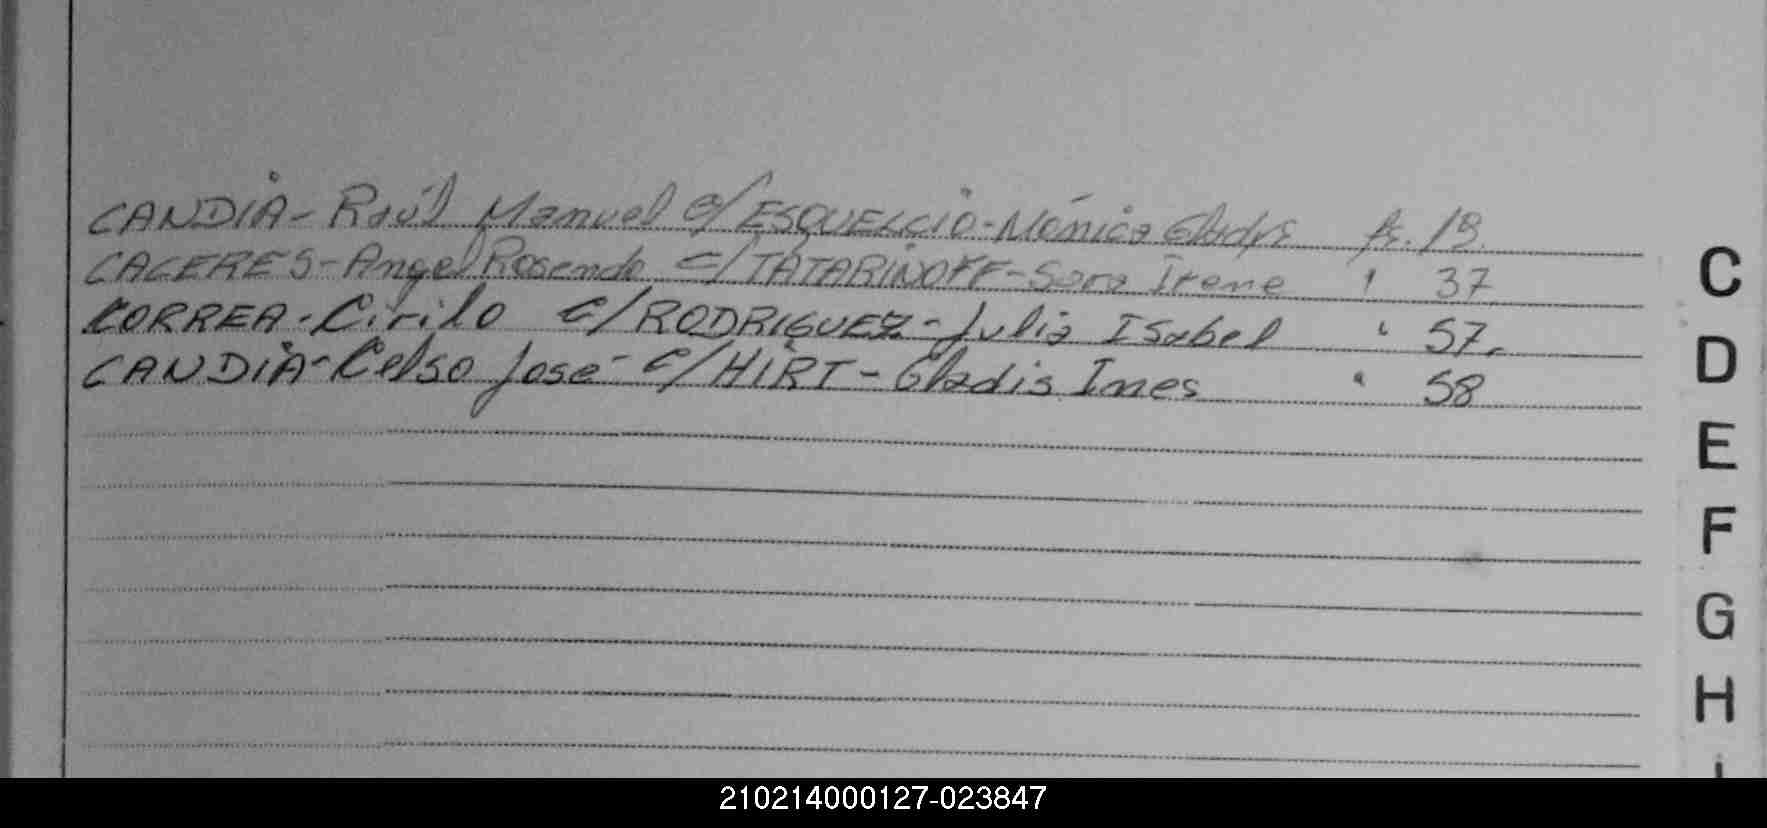 CANDIA - Raúl Manuel c/ ESQUELCIO - Mónica Gladys Fs. 19
CACERES - Angel Rosendo c/ TATARINOFF - Sara Irene " 37
CORREA - Cirilo c/ RODRIGUEZ - Julia Isabel " 57.
CANDIA - Celso José - c/ HIRT - Gladis Ines " 58
C
D
E
F
G
H
I
210214000127-023847